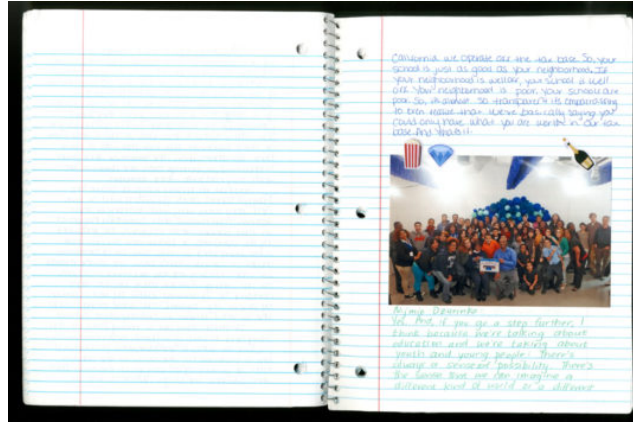 California we operate off the tax base. So, your
school is just as good as your neighborhood. If
your neighborhood is welloff, your school is well
off. Your neighborhood is poor, your schools are
poor. So, its almost so transparent its embarrassing
to even realize that we've basically saying you
could only have what you are worth in our tax
base. And thats it.
Yes. And, if you go a step further, I
think because we're talking about
education and we're talking about
youth and young people. There's
always a sense of possibility. There's
the sense that we can imagine a
different kind of world or a different